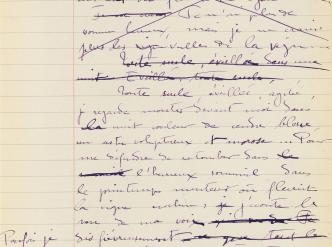 Je n'ai plus de
somme heureux, mais je ne crains
plus les vrilles de la vigne
Toute seule, éveillée dans une
nuit Éveillée, toute seule,
Toute seule, éveillée,
je regarde monter devant moi dans
la nuit couleur de cendre bleue
un astre voluptueux et morose ... Pour
me défendre de retomber dans le
l'heureux sommeil dans
le printemps menteur où fleurit
la vigne j'écoute le
son de ma voix
Parfois je dis fiévreusement ce que tout le